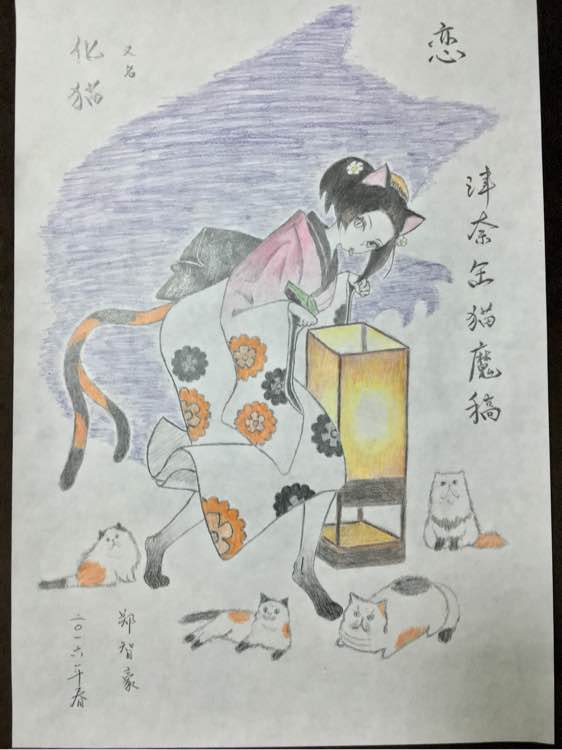 恋
津奈缶猫魔稿
又名
化猫
郑智豪
二〇一六年春